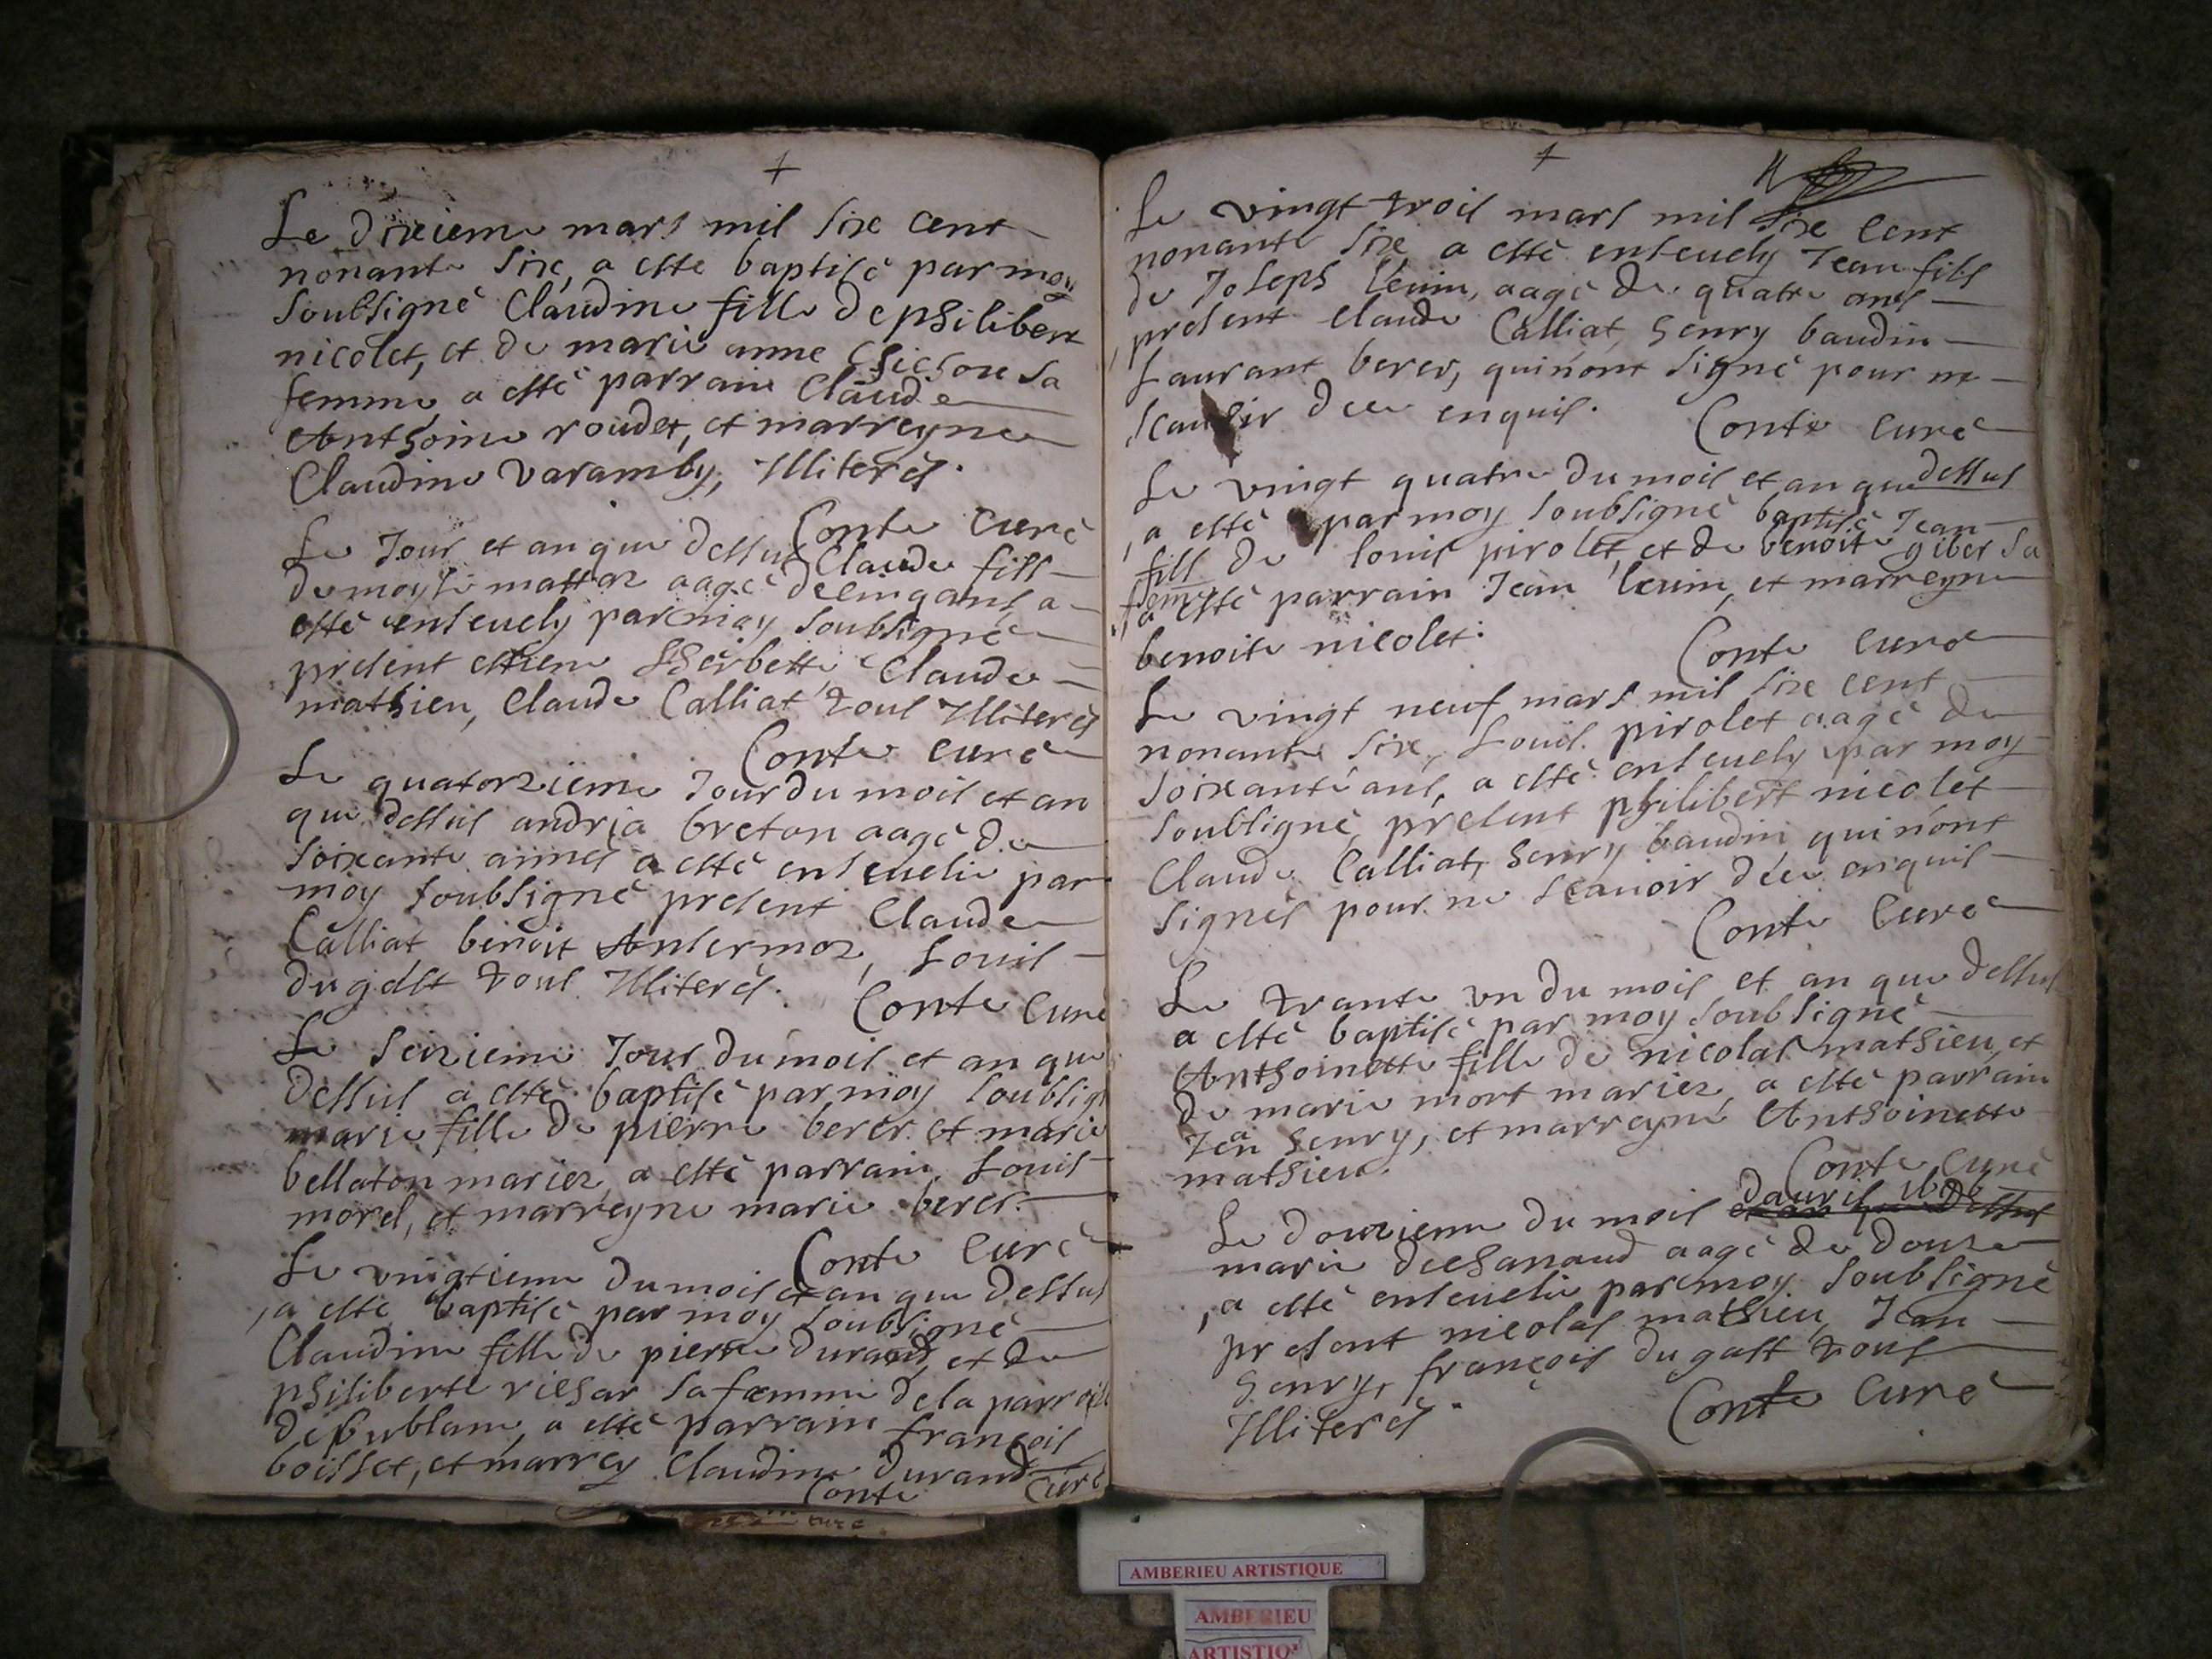 Le dixieme mars mil six cent
nonante six, a esté baptisé par moy
soubsigné Claudine fille de philibert
nicolet, et de marie anne Chichou sa
femme, a esté parrain Claude
Anthoine roudet, et marreyne
Claudine varamby, Illiterés.
Conte curé
Le Jour et an que dessus Claude fils
de moyse mattaz aagé de cinq ans a
esté ensevely par moy soubsigné
present estiene Cherbette Claude
mathieu, Claude Calliat tous Illiterés
Conte curé
Le quatorzieme Jour du mois et an
que dessus andria breton aagé de
soixante annes a esté ensevelie par
moy soubsigné present Claude
Calliat benoit Antermoz, Louis
dugast tous Illiterés.
Conte Curé
Le seizieme Jour du mois et an que
dessus a esté baptisé par moy soubsig
marie fille de pierre berer et marie
bellaton mariez, a esté parrain Louis
morel, et marreyne marie berer.
Conte Curé
Le vingtieme du mois et an que dessus
a esté baptisé par moy soubsigné
Claudine fille de pierre durand, et de
philiberte richar sa femme de la parroisse
de publane, a esté parrain françois
boisset, et marrey Claudine durand
Conte Curé
11
Le vingt trois mars mil six cent
nonante six a esté ensevely Jean fils
de Joseph levin, aagé de quatre ans
present Claude Calliat, henry baudin
Laurant berer, qui n'ont signé pour ne
scavoir de ce enquis.
Conte curé
Le vingt quatre du mois et an que dessus
a esté par moy soubsigné baptisé Jean
fils de louis pirolet, et de benoite giber sa
feme, a esté parrain Jean levin, et marreyne
benoite nicolet.
Conte curé
Le vingt neuf mars mil six cent
nonante six, Louis pirolet aagé de
soixante ans, a esté ensevely par moy
soubsigné, present philibert nicolet
Claude Calliat, henry baudin qui n'ont
signés pour ne scavoir de ce enquis
Conte Curé
Le trante un du mois et an que dessus
a esté baptisé par moy soubsigné
Anthoinette fille de nicolas mathieu, et
de marie mort mariez, a esté parrain
Jean henry, et marreyne Anthoinette
mathieu.
Conte Curé
Le douzieme du mois et an que dessus davril 1696
marie dechanaud aagé de douze
a esté ensevelie par moy soubsigné
present nicolas mathieu, Jean
henry, françois dugast tous
Illiterés.
Conte Curé
AMBERIEU ARTISTIQUE
AMBERIEU
ARTISTIQ